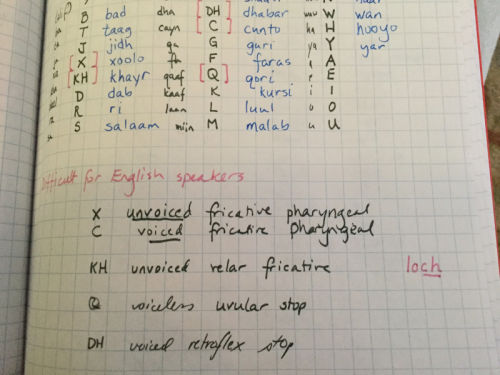 B bad dha DH dhabar W wan
T taag cayn C cunto H hooyo
J jidh G guri Y yar
X xoolo F faras A
KH khayr qaaf Q qori E
D dab kaaf K kursi i I
R ri laan L luul O
S salaam miin M malab u U
Difficult for English speakers
X unvoiced fricative pharyngeal
C voiced fricative pharyngeal
KH unvoiced velar fricative loch
Q voiceless uvular stop
DH voiced retroflex stop